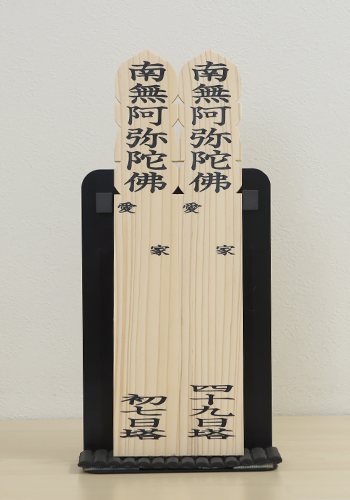 南無阿弥陀佛
家
愛
四十九日塔
南無阿弥陀佛
家
愛
初七日塔